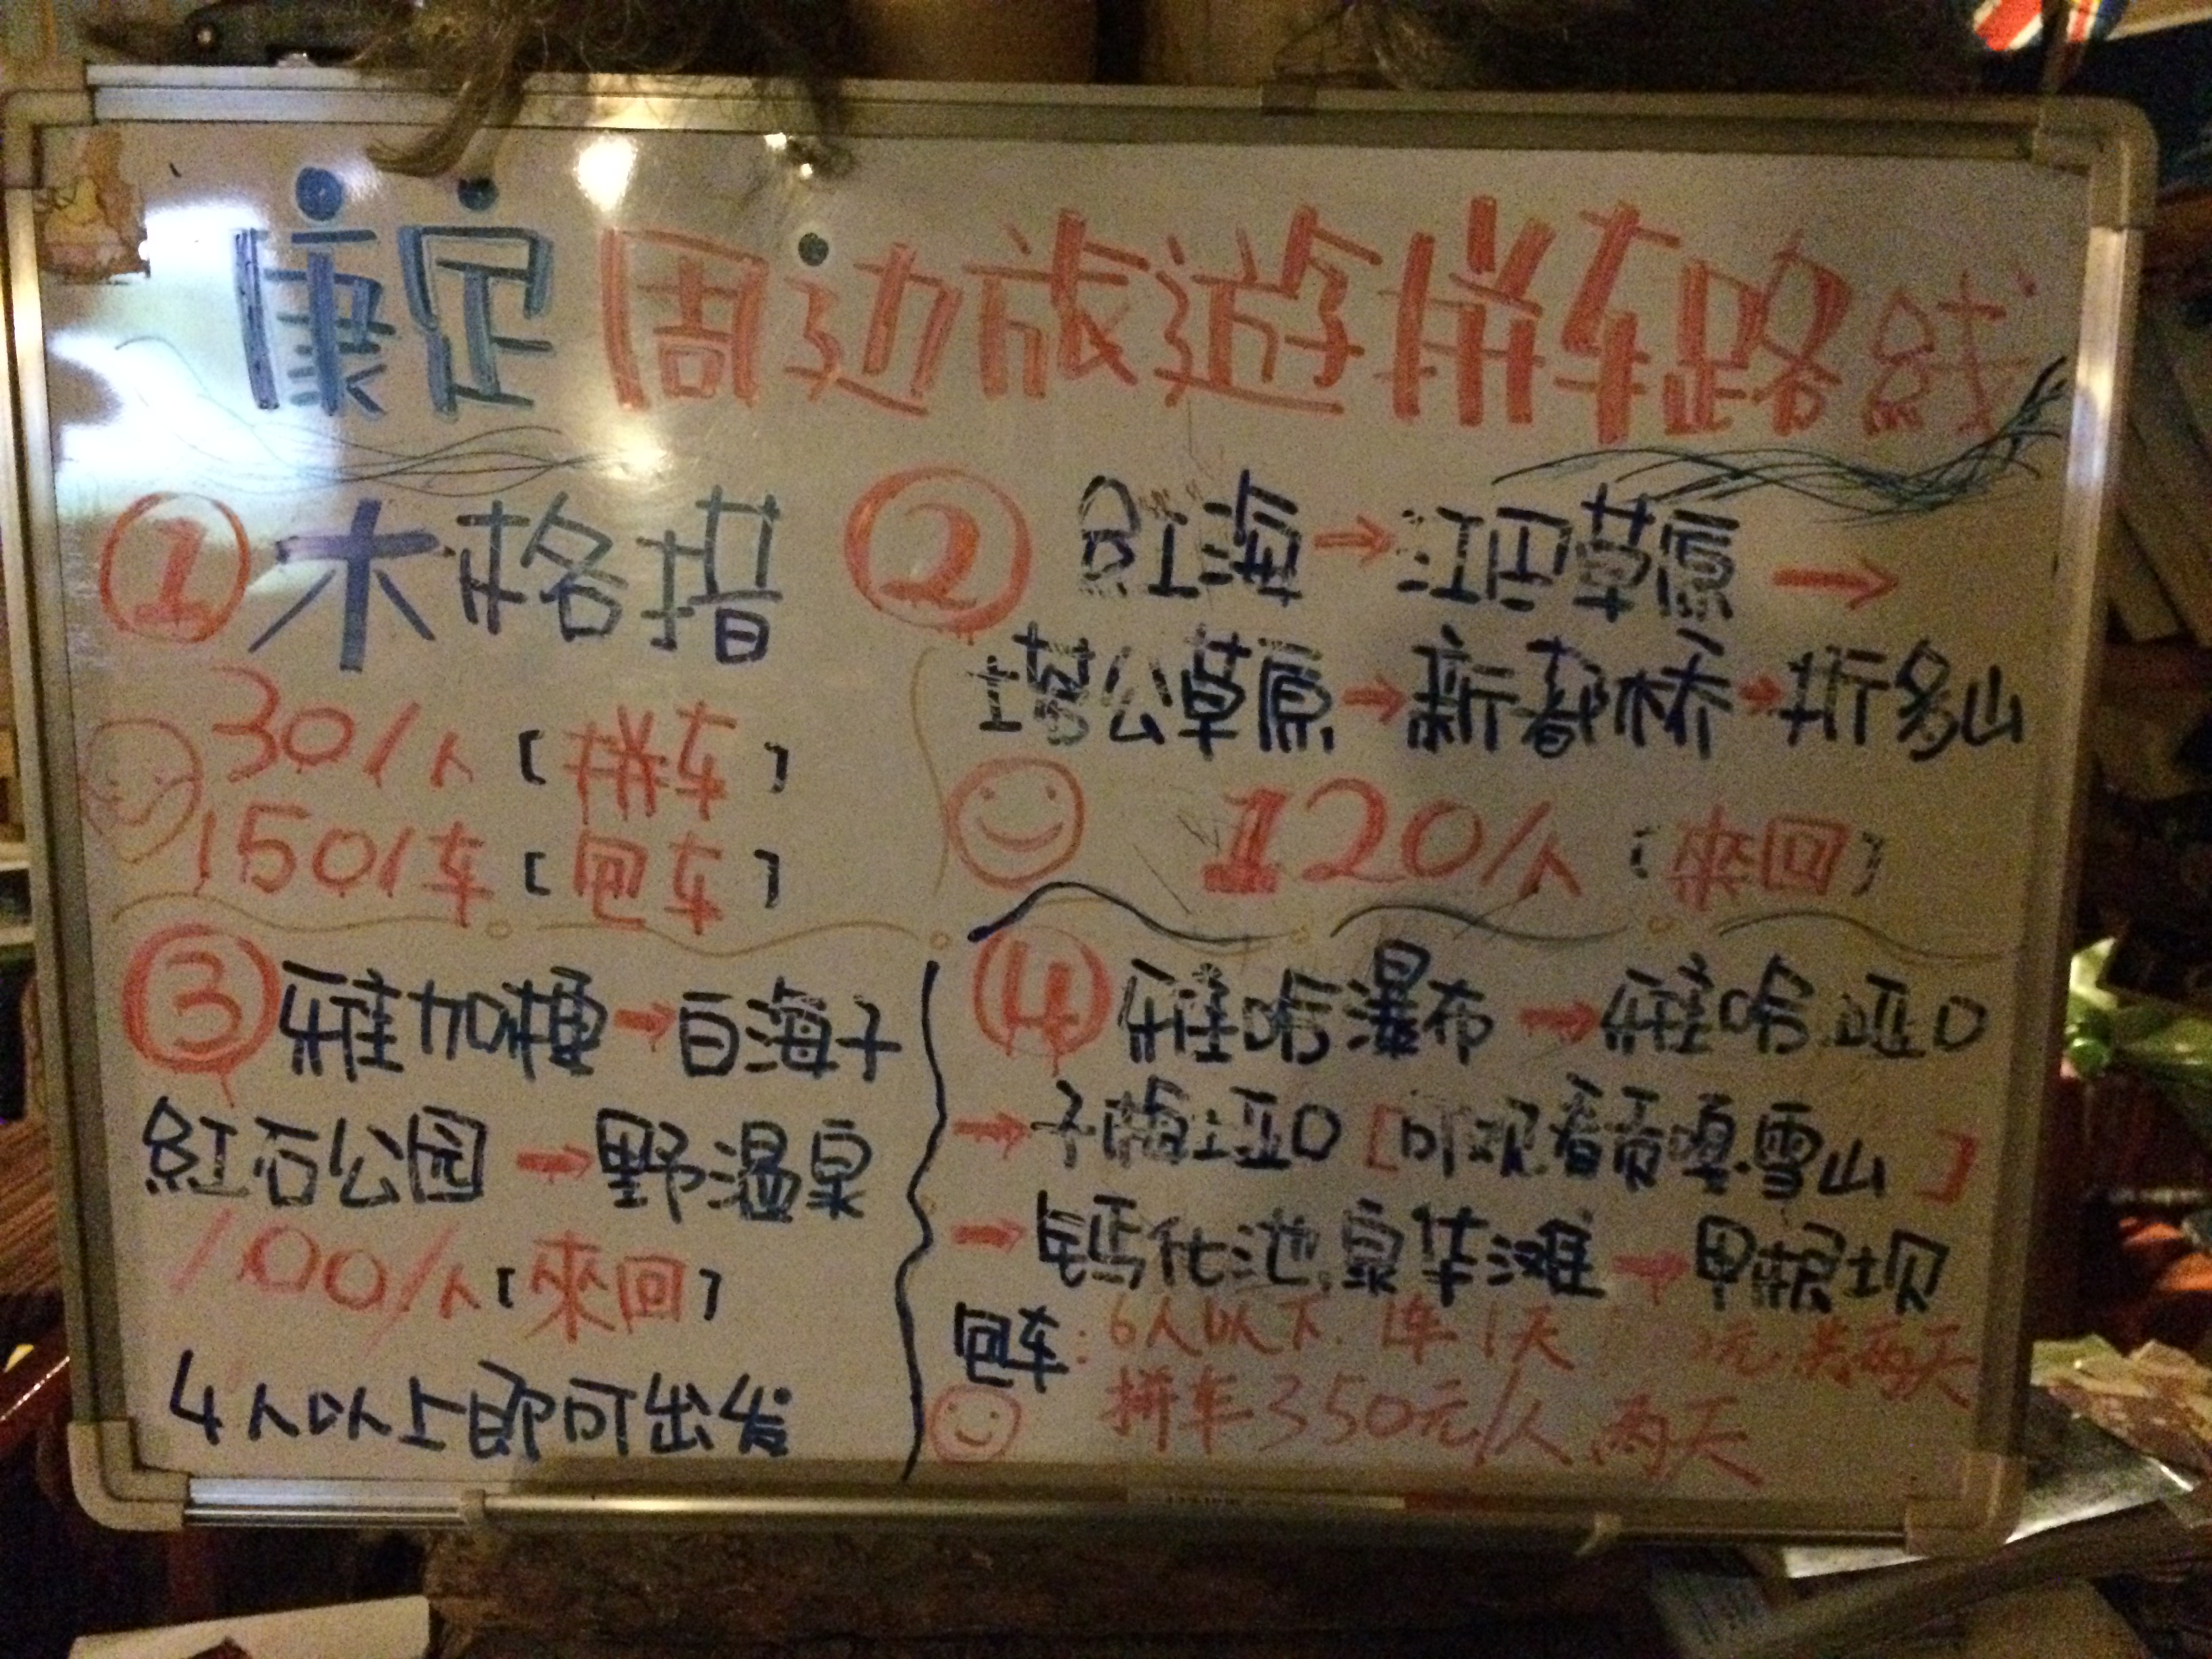 康定周边旅遊拼车路綫
① 木格措
30/人 [拼车]
150/车 [包车]
② 紅海→江巴草原→
塔公草原→新都桥→折多山
120/人 [來回]
③ 雅加梗→白海子
紅石公园→野温泉
100/人 [來回]
4人以上即可出发
④ 雅哈瀑布→雅哈垭口
→子梅垭口[可观看贡嘎雪山]
→钙化池泉华滩→甲根坝
包车: 6人以下 1车1天 元 共两天
拼车350元/人 两天